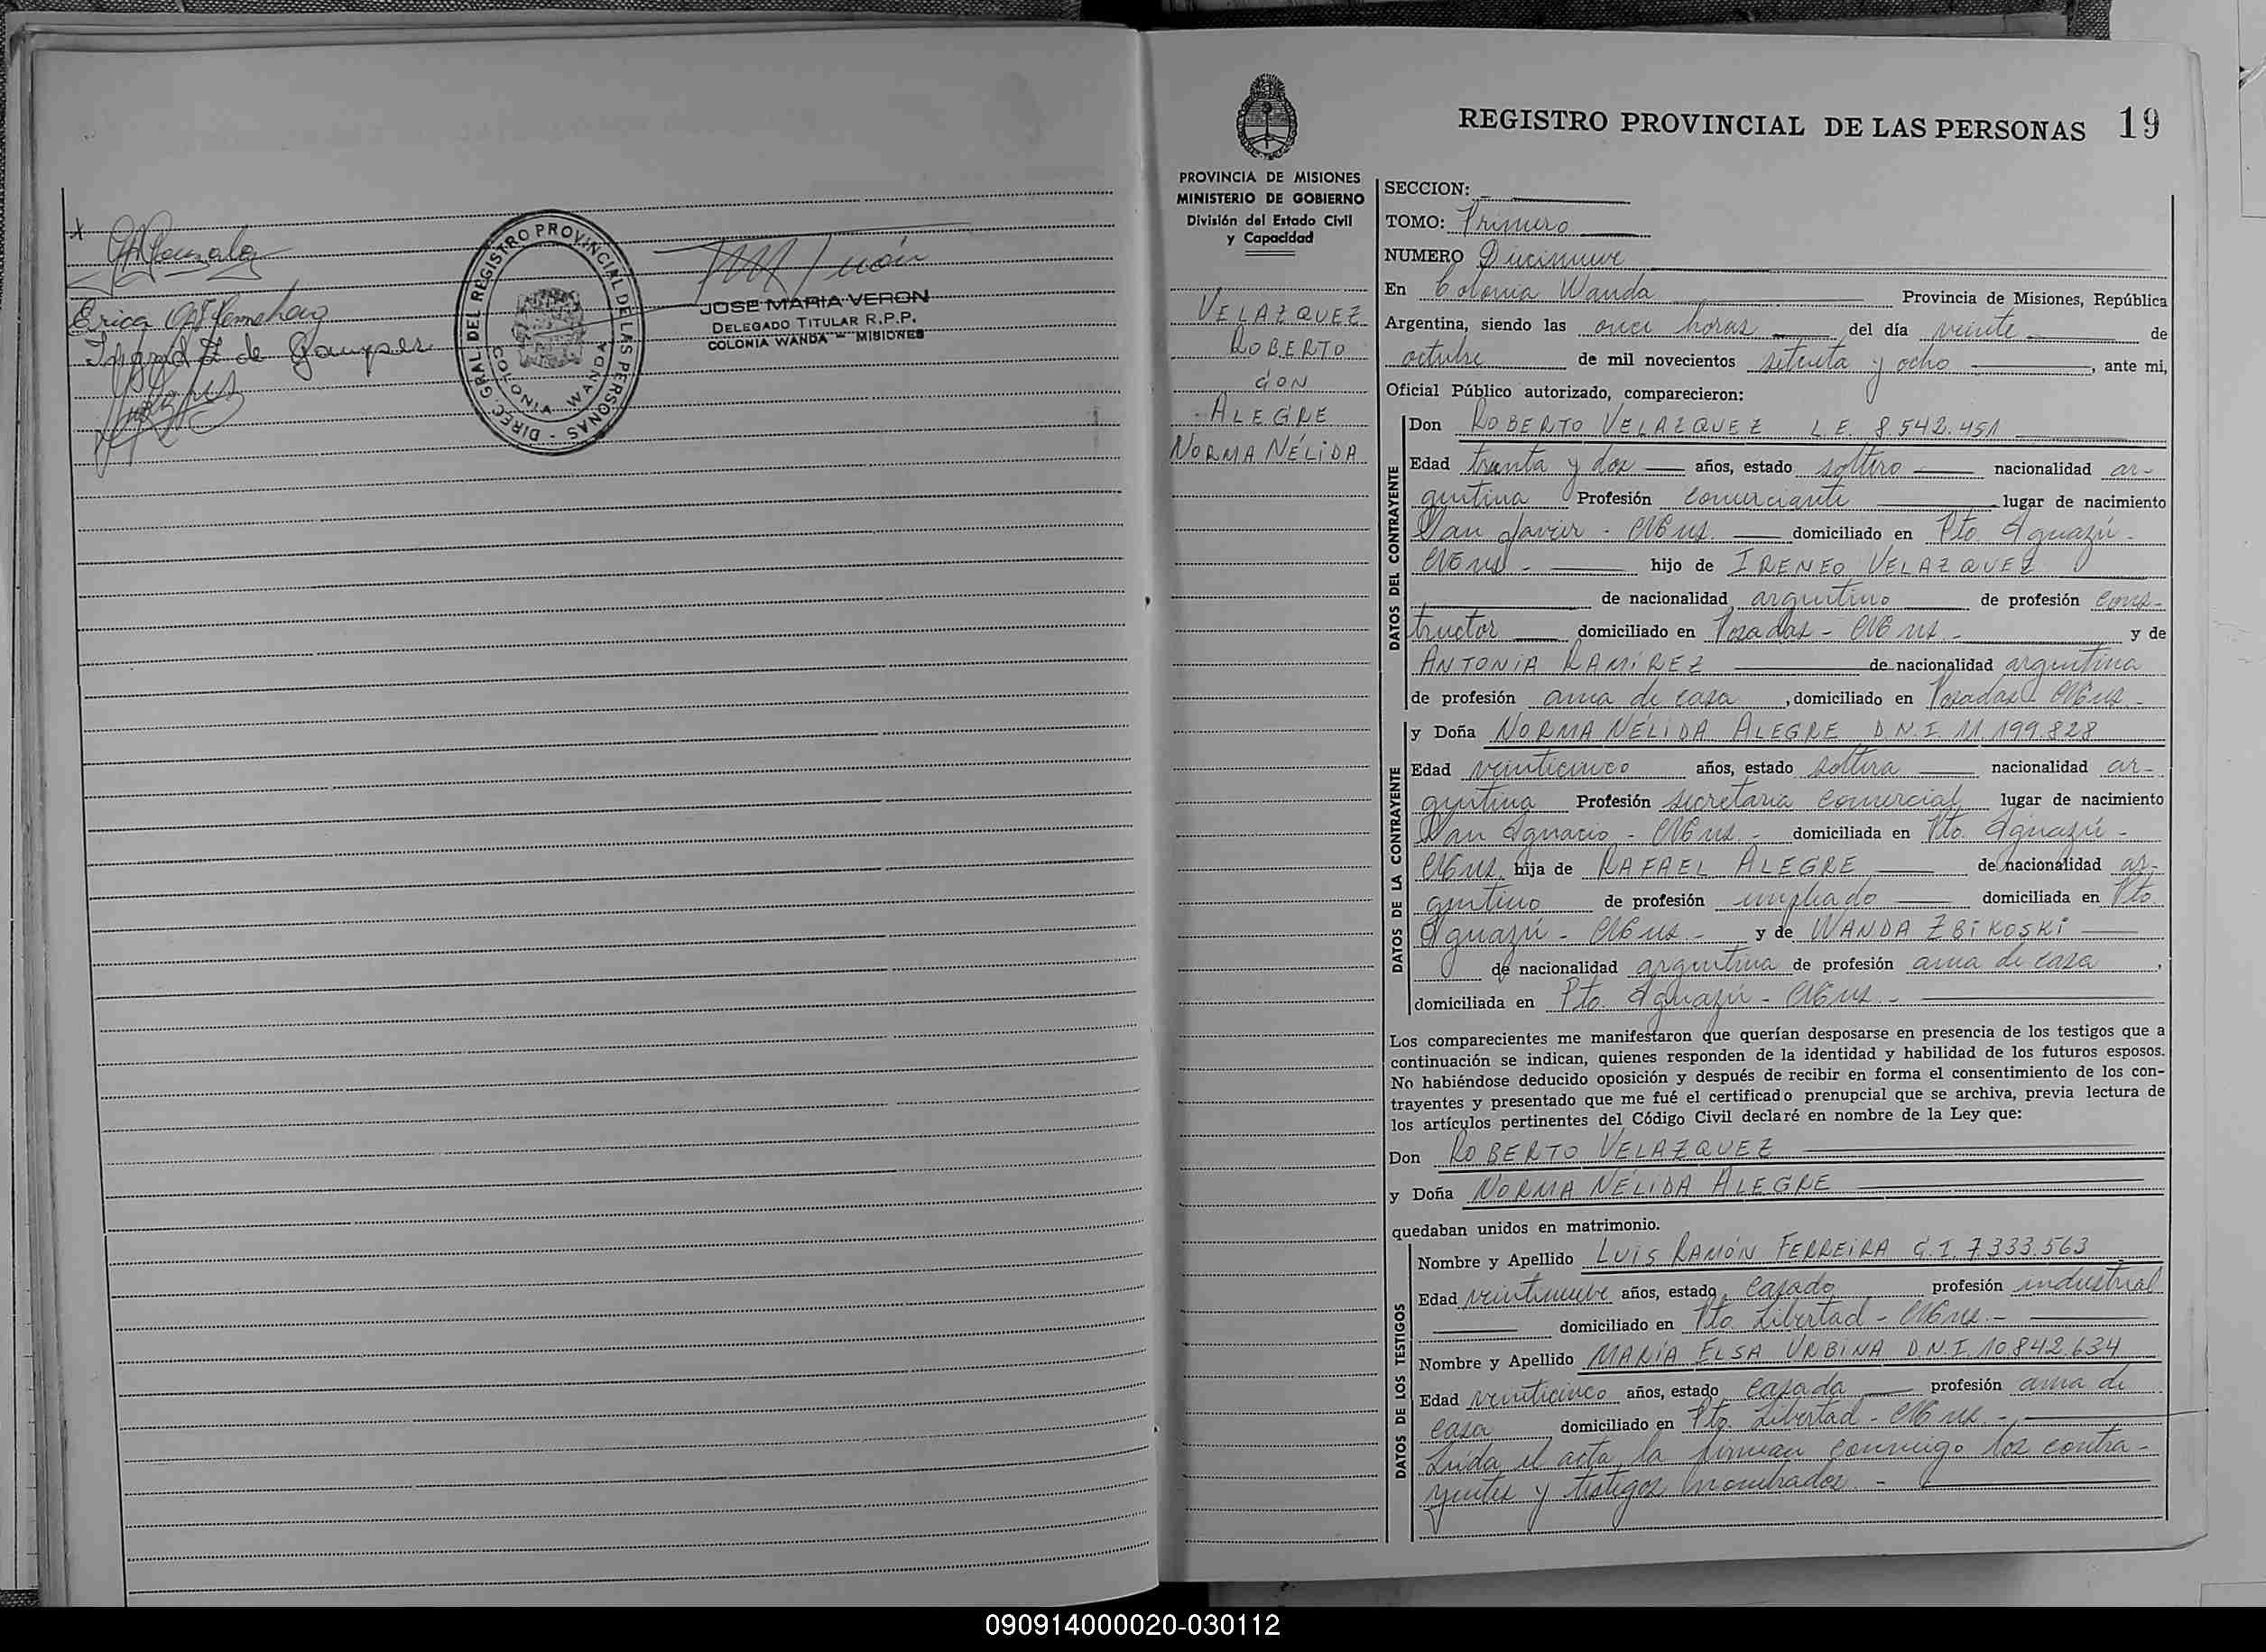 Erica
Ingrid Z de
DIREC. GRAL. DEL REGISTRO PROVINCIAL DE LAS PERSONAS -
COLONIA WANDA
JOSE MARIA VERON
DELEGADO TITULAR R.P.P.
COLONIA WANDA - MISIONES
REGISTRO PROVINCIAL DE LAS PERSONAS 19
PROVINCIA DE MISIONES
MINISTERIO DE GOBIERNO
División del Estado Civil
y Capacidad
VELAZQUEZ
ROBERTO
CON
ALEGRE
NORMA NÉLIDA
SECCION:
TOMO: Primero
NUMERO Diecinueve
En Colonia Wanda Provincia de Misiones, República
Argentina, siendo las once horas del día veinte de
octubre de mil novecientos setenta y ocho, ante mi,
Oficial Público autorizado, comparecieron:
DATOS DEL CONTRAYENTE
Don ROBERTO VELAZQUEZ L.E. 8.542.451
Edad treinta y dos años, estado soltero nacionalidad ar-
gentina Profesión comerciante lugar de nacimiento
San Javier - Mnes. domiciliado en Pto. Iguazú -
Mnes - hijo de IRENEO VELAZQUEZ
de nacionalidad argentino de profesión cons-
tructor domiciliado en Posadas - Mnes - y de
ANTONIA RAMÍREZ de nacionalidad argentina
de profesión ama de casa, domiciliado en Posadas - Mnes -
DATOS DE LA CONTRAYENTE
y Doña NORMA NÉLIDA ALEGRE D.N.I. 11.199.828
Edad veinticinco años, estado soltera nacionalidad ar-
gentina Profesión secretaria comercial lugar de nacimiento
San Ignacio - Mnes - domiciliada en Pto. Iguazú -
Mnes. hija de RAFAEL ALEGRE de nacionalidad ar-
gentino de profesión empleado domiciliada en Pto
Iguazú - Mnes - y de WANDA ZBIKOSKI
de nacionalidad argentina de profesión ama de casa,
domiciliada en Pto. Iguazú - Mnes -
Los comparecientes me manifestaron que querían desposarse en presencia de los testigos que a
continuación se indican, quienes responden de la identidad y habilidad de los futuros esposos.
No habiéndose deducido oposición y después de recibir en forma el consentimiento de los con-
trayentes y presentado que me fué el certificado prenupcial que se archiva, previa lectura de
los artículos pertinentes del Código Civil declaré en nombre de la Ley que:
Don ROBERTO VELAZQUEZ
y Doña NORMA NÉLIDA ALEGRE
quedaban unidos en matrimonio.
DATOS DE LOS TESTIGOS
Nombre y Apellido LUIS RAMÓN FERREIRA C.I. 7.333.563
Edad veintinueve años, estado casado profesión industrial
domiciliado en Pto. Libertad - Mnes. -
Nombre y Apellido MARÍA ELSA URBINA D.N.I. 10.842.634
Edad veinticinco años, estado casada profesión ama de
casa domiciliado en Pto. Libertad - Mnes. -
Leída el acta, la firman conmigo los contra-
yentes y testigos nombrados. -
090914000020-030112